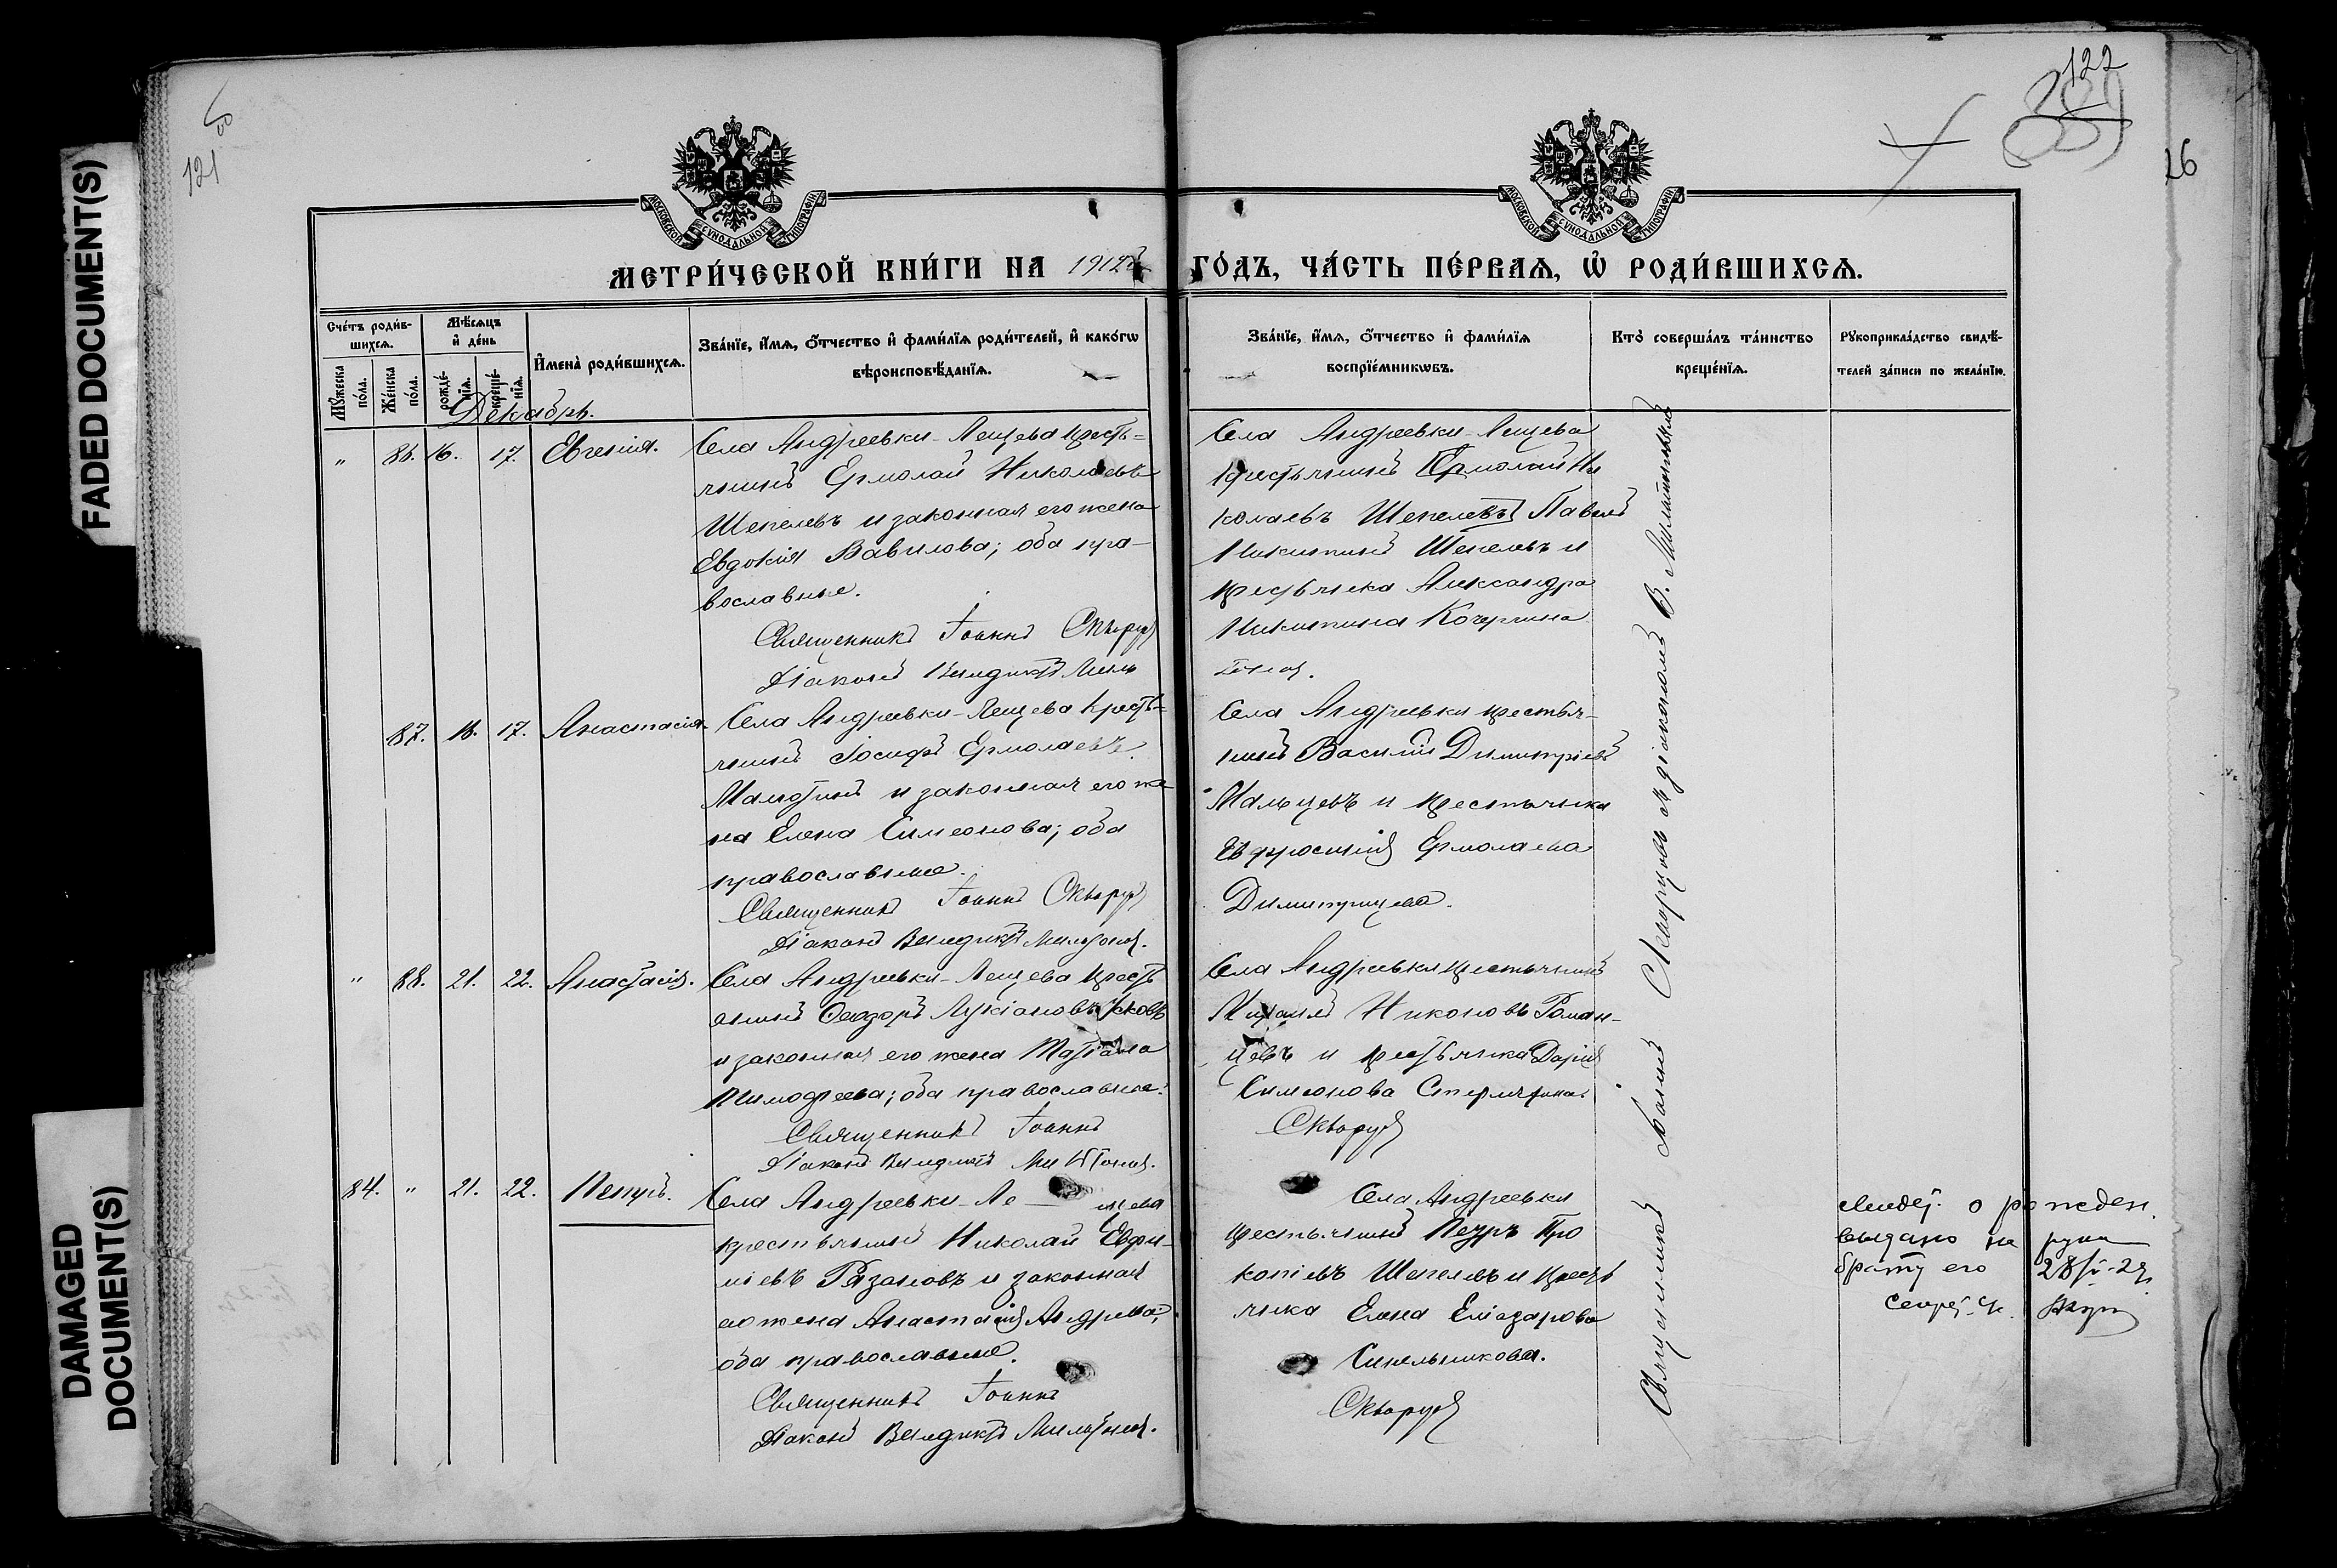 FADED DOCUMENT(S)
DAMAGED
DOCUMENT(S)
121
122
26
МОСКОВСКОЙ СѴНОДАЛЬНОЙ ТИПОГРАФІИ
МОСКОВСКОЙ СѴНОДАЛЬНОЙ ТИПОГРАФІИ
МЕТРИ́ЧЕСКОЙ КНИ́ГИ НА 1912й ГО́ДЪ, ЧА́СТЬ ПЕ́РВАѦ, Ѡ҆ РОДИ́ВШИХСѦ.
Сче́тъ роди́в-
шихсѧ.
Мꙋ́жеска по́ла.
Же́нска по́ла.
Мѣ́сѧцъ
и҆ де́нь
рожде́-
нїѧ.
креще́-
нїѧ.
И҆мена̀ роди́вшихсѧ.
Зва́нїе, и҆́мѧ, ѻ҆́тчество и҆ фами́лїѧ роди́телей, и҆ како́гѡ
вѣроисповѣ́данїѧ.
Зва́нїе, и҆́мѧ, ѻ҆́тчество и҆ фами́лїѧ
воспрїе́мникѡвъ.
Кто̀ соверша́лъ та́инство
креще́нїѧ.
Рꙋкоприкла́дство свидѣ́-
телей за́писи по жела́нїю.
Декабрь.
" 86. 16. 17. Евгенія.
Села Андреевки-Лещева кресть-
янинъ Ермолай Николаевъ
Шепелевъ и законная его жена
Евдокія Вавилова; оба пра-
вославные.
Священникъ Іоаннъ Скворцов
Діаконъ Венедиктъ Миль
Села Андреевки-Лещева
крестьянинъ Ермолай Ни
колаевъ Шепелевъ, Павелъ
Никитинъ Шепелевъ и
крестьянка Александра
Никитина Кочергина
тонов.
87. 16. 17. Анастасія.
Села Андреевки-Лещева кресть-
янинъ Іосифъ Ермолаевъ
Малютинъ и законная его же
на Елена Симеонова; оба
православные.
Священникъ Іоаннъ Скворцов
Діаконъ Венедиктъ Мильтонов.
Села Андреевки крестья-
нинъ Василій Димитріевъ
Мальцевъ и крестьянка
Евфросинія Ермолаева
Димитрицева.
" 88. 21. 22. Анастасія.
Села Андреевки-Лещева кресть
янинъ Ѳеодоръ Лукіановъ
и законная его жена Татіана
Тимоѳеева; оба православные.
Священникъ Іоаннъ
Діаконъ Венедиктъ Мильтонов.
Села Андреевки крестьянинъ
Михаилъ Никоновъ Роман-
цевъ и крестьянка Дарія
Симеонова
Скворцов
84. " 21. 22. Петръ.
Села Андреевки-Ле — щева
крестьянинъ Николай Евфи-
міевъ Рязановъ и законная
его жена Анастасія Андреева;
оба православные.
Священникъ Іоаннъ
Діаконъ Венедиктъ Мильтонов.
Села Андреевки
крестьянинъ Петръ Про
копіевъ Шепелевъ и кресть
янка Елена Елеазарова
Синельникова.
Скворцов
Священникъ Іоаннъ Скворцовъ съ діакономъ В. Мильтоновымъ
о рожден.
выдано на руки
брату его